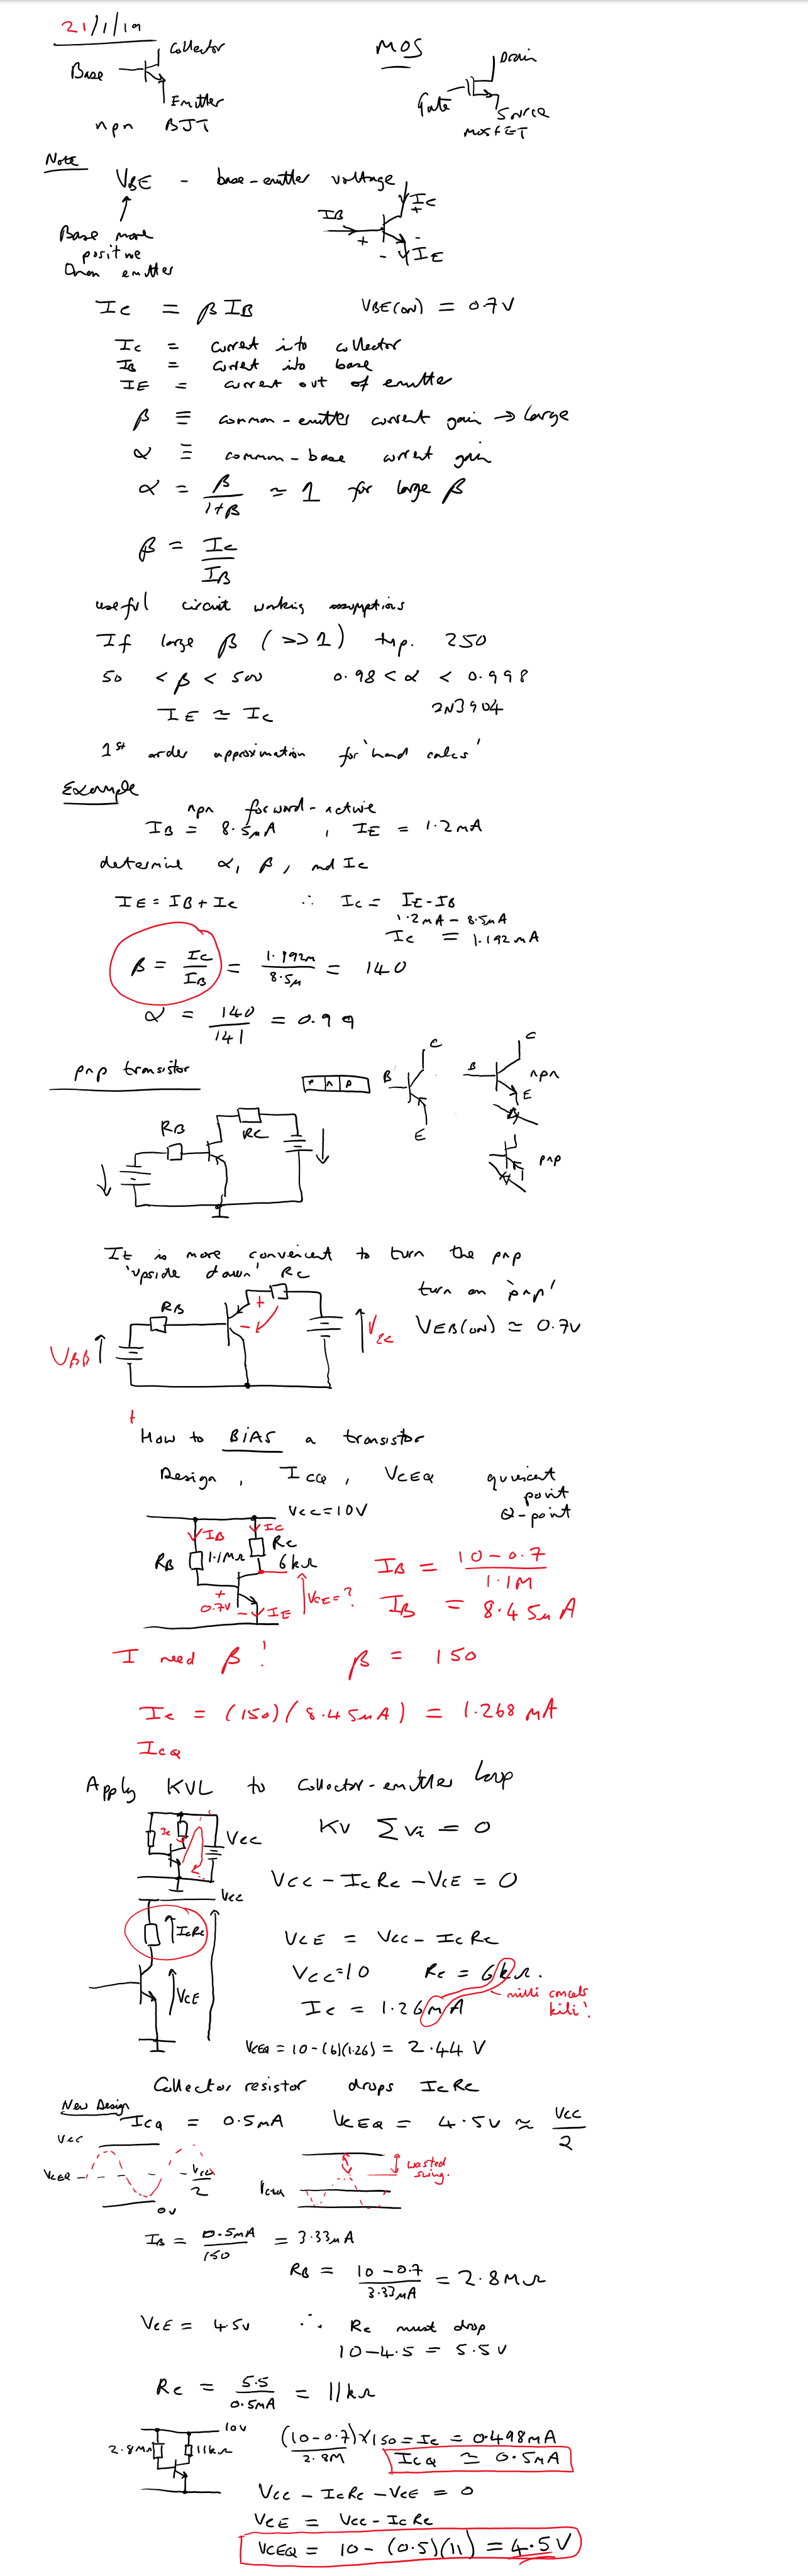 21/1/19
Collector
Base
Emitter
npn BJT
MOS
Drain
Gate
Source
MOSFET
Note
VBE - base-emitter voltage
Base more
positive
than emitter
IB
IC
+
+
-
-
IE
IC = β IB VBE(ON) = 0.7V
IC = current into collector
IB = current into base
IE = current out of emitter
β ≡ common-emitter current gain → large
α ≡ common-base current gain
α = β/1+β ≃ 1 for large β
β = IC/IB
useful circuit working assumptions
If large β (>>1) typ. 250
50 < β < 500 0.98 < α < 0.998
IE ≃ IC 2N3904
1st order approximation for 'hand calcs'
Example
npn forward-active
IB = 8.5μA , IE = 1.2mA
determine α, β, and IC
IE = IB + IC ∴ IC = IE-IB
1.2mA - 8.5μA
IC = 1.192mA
β = IC/IB = 1.192m/8.5μ = 140
α = 140/141 = 0.99
pnp transistor
P N P
B
C
E
B
C
npn
E
pnp
RB
RC
It is more convenient to turn the pnp
'upside down'
RC
turn on 'pnp'
RB
+
-
VBB
VCC
VEB(ON) ≃ 0.7V
How to BIAS a transistor
Design , ICQ , VCEQ quiescent
point
Q-point
VCC=10V
IB
IC
RB
1.1MΩ
RC
6kΩ
+
0.7V
-
IE
VCE=?
IB = 10-0.7/1.1M
IB = 8.45μA
I need β! β = 150
IC = (150)(8.45μA) = 1.268 mA
ICQ
Apply KVL to Collector-emitter loop
IC
VCC
KV Σ Vi = 0
VCC - IC RC - VCE = 0
VCC
ICRC
VCE
VCE = VCC - IC RC
VCC=10 RC = 6kΩ.
IC = 1.26mA
milli cancels
kili!
VCEQ = 10-(6)(1.26) = 2.44 V
Collector resistor drops ICRC
New Design
ICQ = 0.5mA VCEQ = 4.5V ≈ VCC/2
VCC
VCEQ
VCC/2
0V
VCEQ
wasted
swing.
IB = 0.5mA/150 = 3.33μA
RB = 10-0.7/3.33μA = 2.8MΩ
VCE = 4.5V ∴ RC must drop
10-4.5 = 5.5V
RC = 5.5/0.5mA = 11kΩ
10V
2.8MΩ
11kΩ
(10-0.7)/2.8M × 150 = IC = 0.498mA
ICQ ≃ 0.5mA
VCC - ICRC - VCE = 0
VCE = VCC - ICRC
VCEQ = 10 - (0.5)(11) = 4.5V